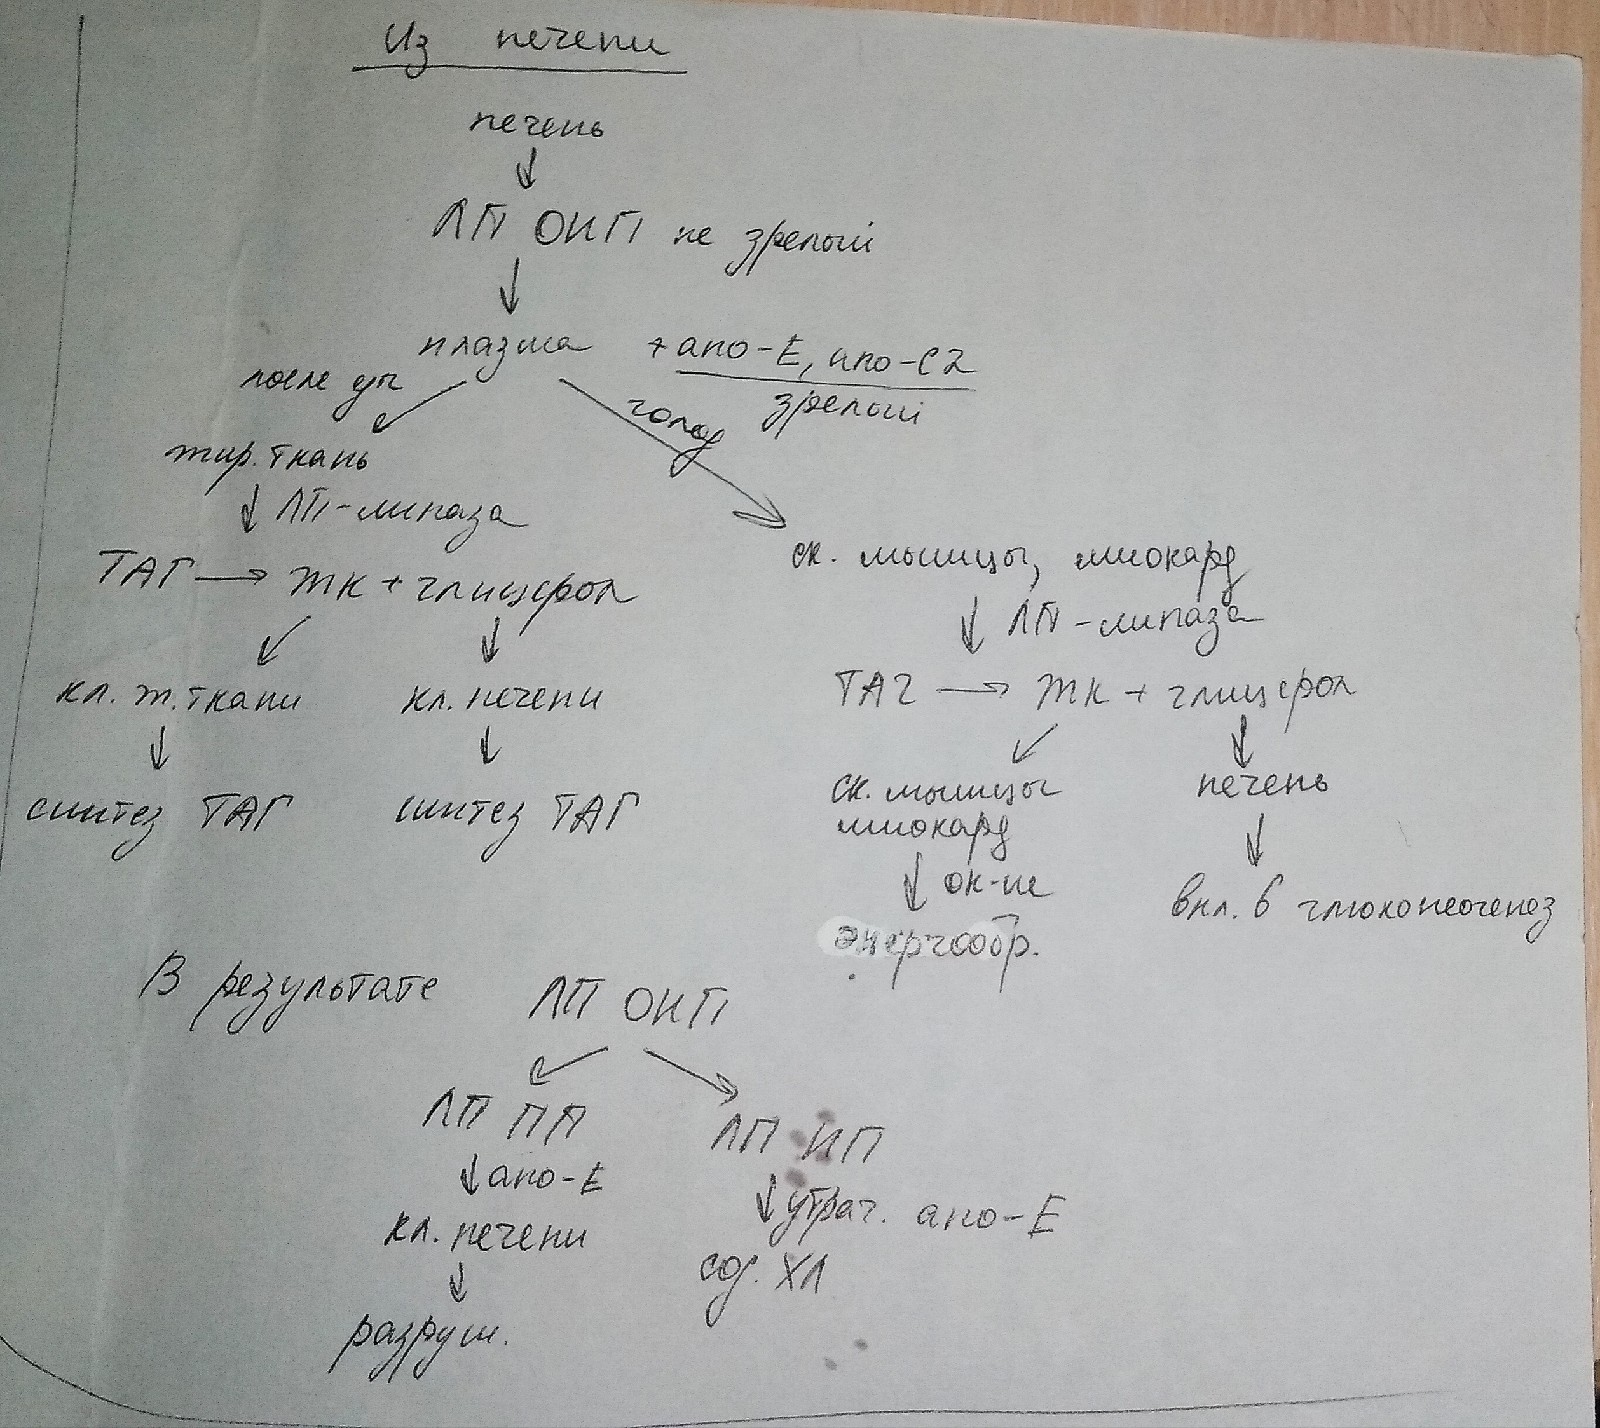 Из печени
печень
ЛП ОНП не зрелый
плазма + апо-Е, апо-С2
зрелый
после уп
голод
жир. ткань
ЛП-липаза
ТАГ → ЖК + глицерол
кл. ж. ткани кл. печени
синтез ТАГ синтез ТАГ
ск. мышцы, миокард
ЛП-липаза
ТАГ → ЖК + глицерол
ск. мышцы печень
миокард
ок-ие
энергообр.
вкл. в глюконеогенез
В результате ЛП ОНП
ЛП ПП ЛП НП
апо-Е утрач. апо-Е
кл. печени сод. ХЛ
разруш.